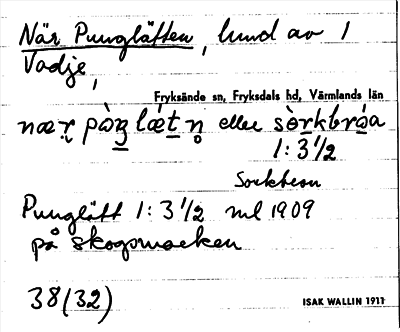 När Punglätten, lund av 1
Vadje,
Fryksände sn, Fryksdals hd, Värmlands län
nær pòŋ lǽt n̥ eller sòrkbróa
1:3 1/2
Sorkbron
Punglätt 1:3 1/2 ml 1909
på skogsmarken
38(32)
ISAK WALLIN 1911